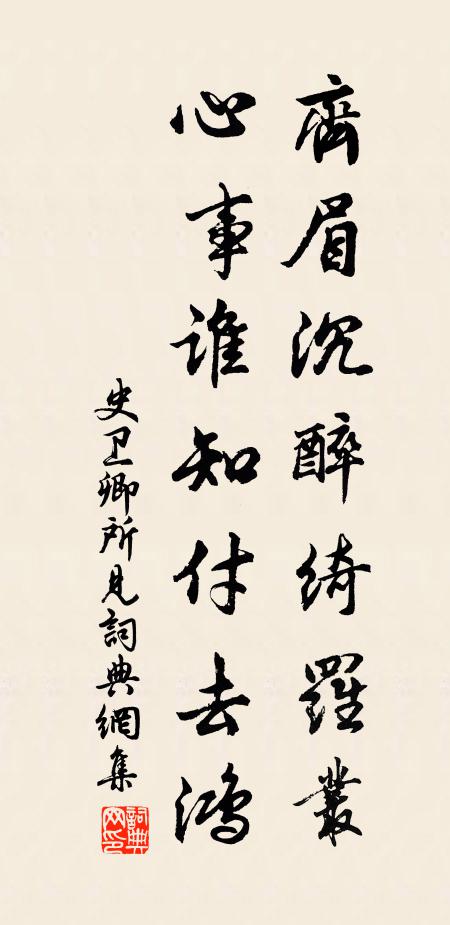 齊眉沉醉綺羅叢
心事誰知付去鴻
史卫卿所見詞典網集
詞典网印